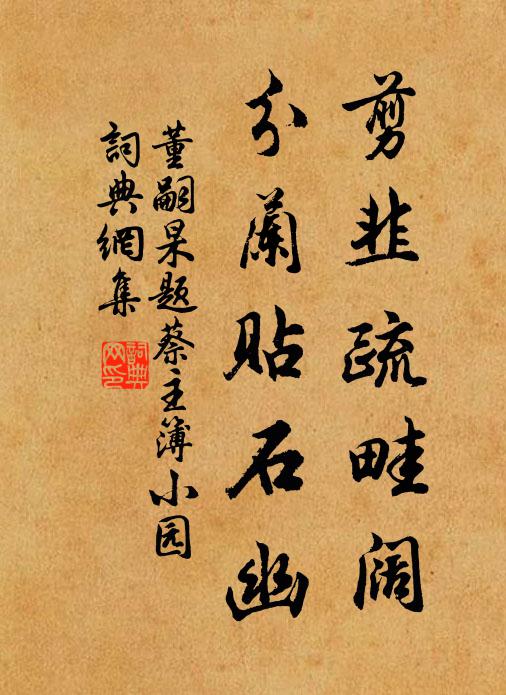 剪韭疏畦阔
分兰贴石幽
董嗣杲题蔡主簿小园
詞典網集
詞典網印